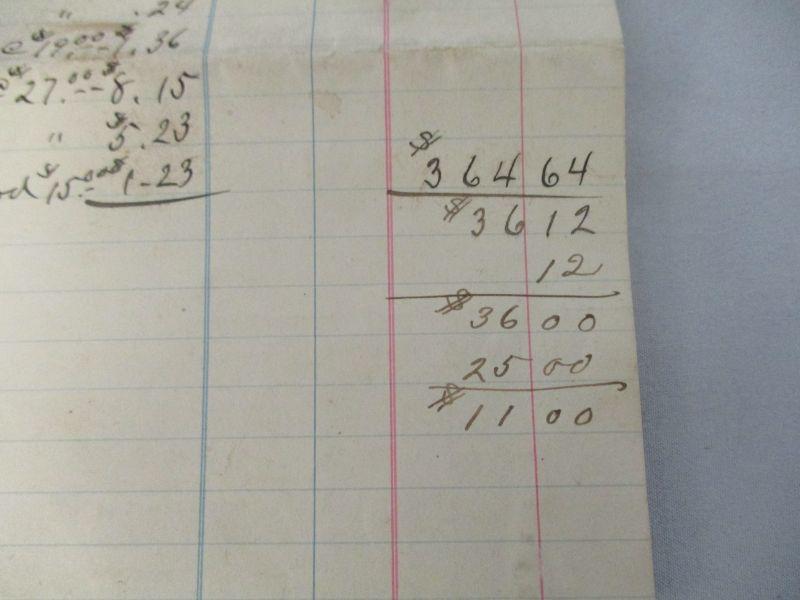 " .24
@ $19.00 $1.36
@ $27.00 $8.15
" $5.23
$15.00 $1.23
$364 64
$36 12
12
$36 00
25 00
$11 00